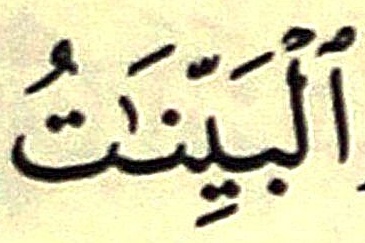 ٱلْبَيِّنَـٰتُ